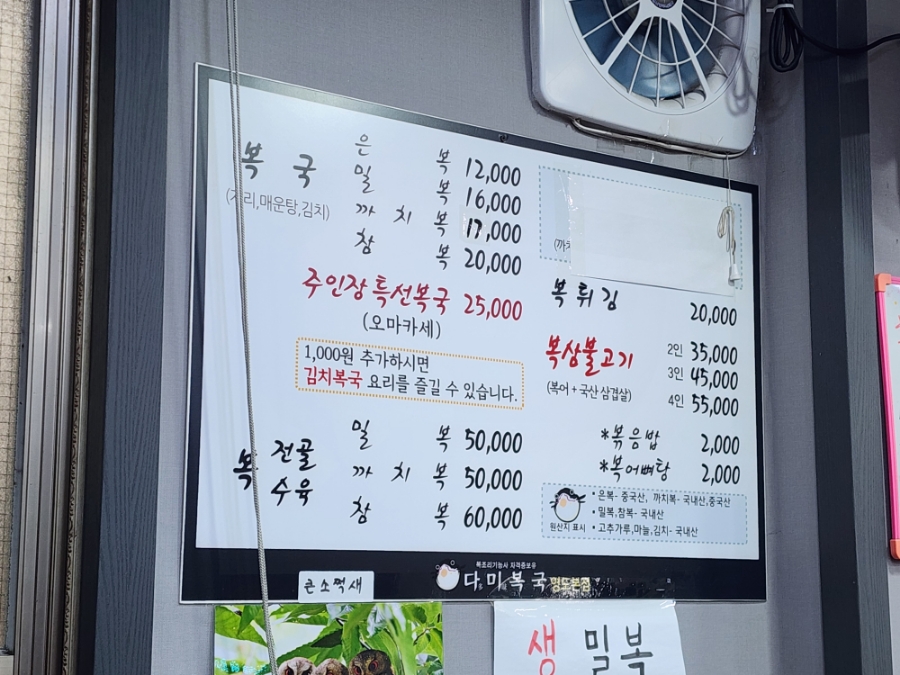 복국
(지리,매운탕,김치)
은 복 12,000
밀 복 16,000
까 치 복 17,000
참 복 20,000
주인장특선복국 25,000
(오마카세)
1,000원 추가하시면
김치복국 요리를 즐길 수 있습니다.
복 전골 수육
밀 복 50,000
까 치 복 50,000
참 복 60,000
(까치
복튀김 20,000
복삼불고기 2인 35,000
(복어+국산 삼겹살) 3인 45,000
4인 55,000
*볶음밥 2,000
*복어뼈탕 2,000
• 은복- 중국산, 까치복- 국내산,중국산
• 밀복,참복- 국내산
• 고추가루,마늘,김치- 국내산
원산지 표시
복조리기능사 자격증보유
다미복국 명도본점
큰소쩍새
생 밀복